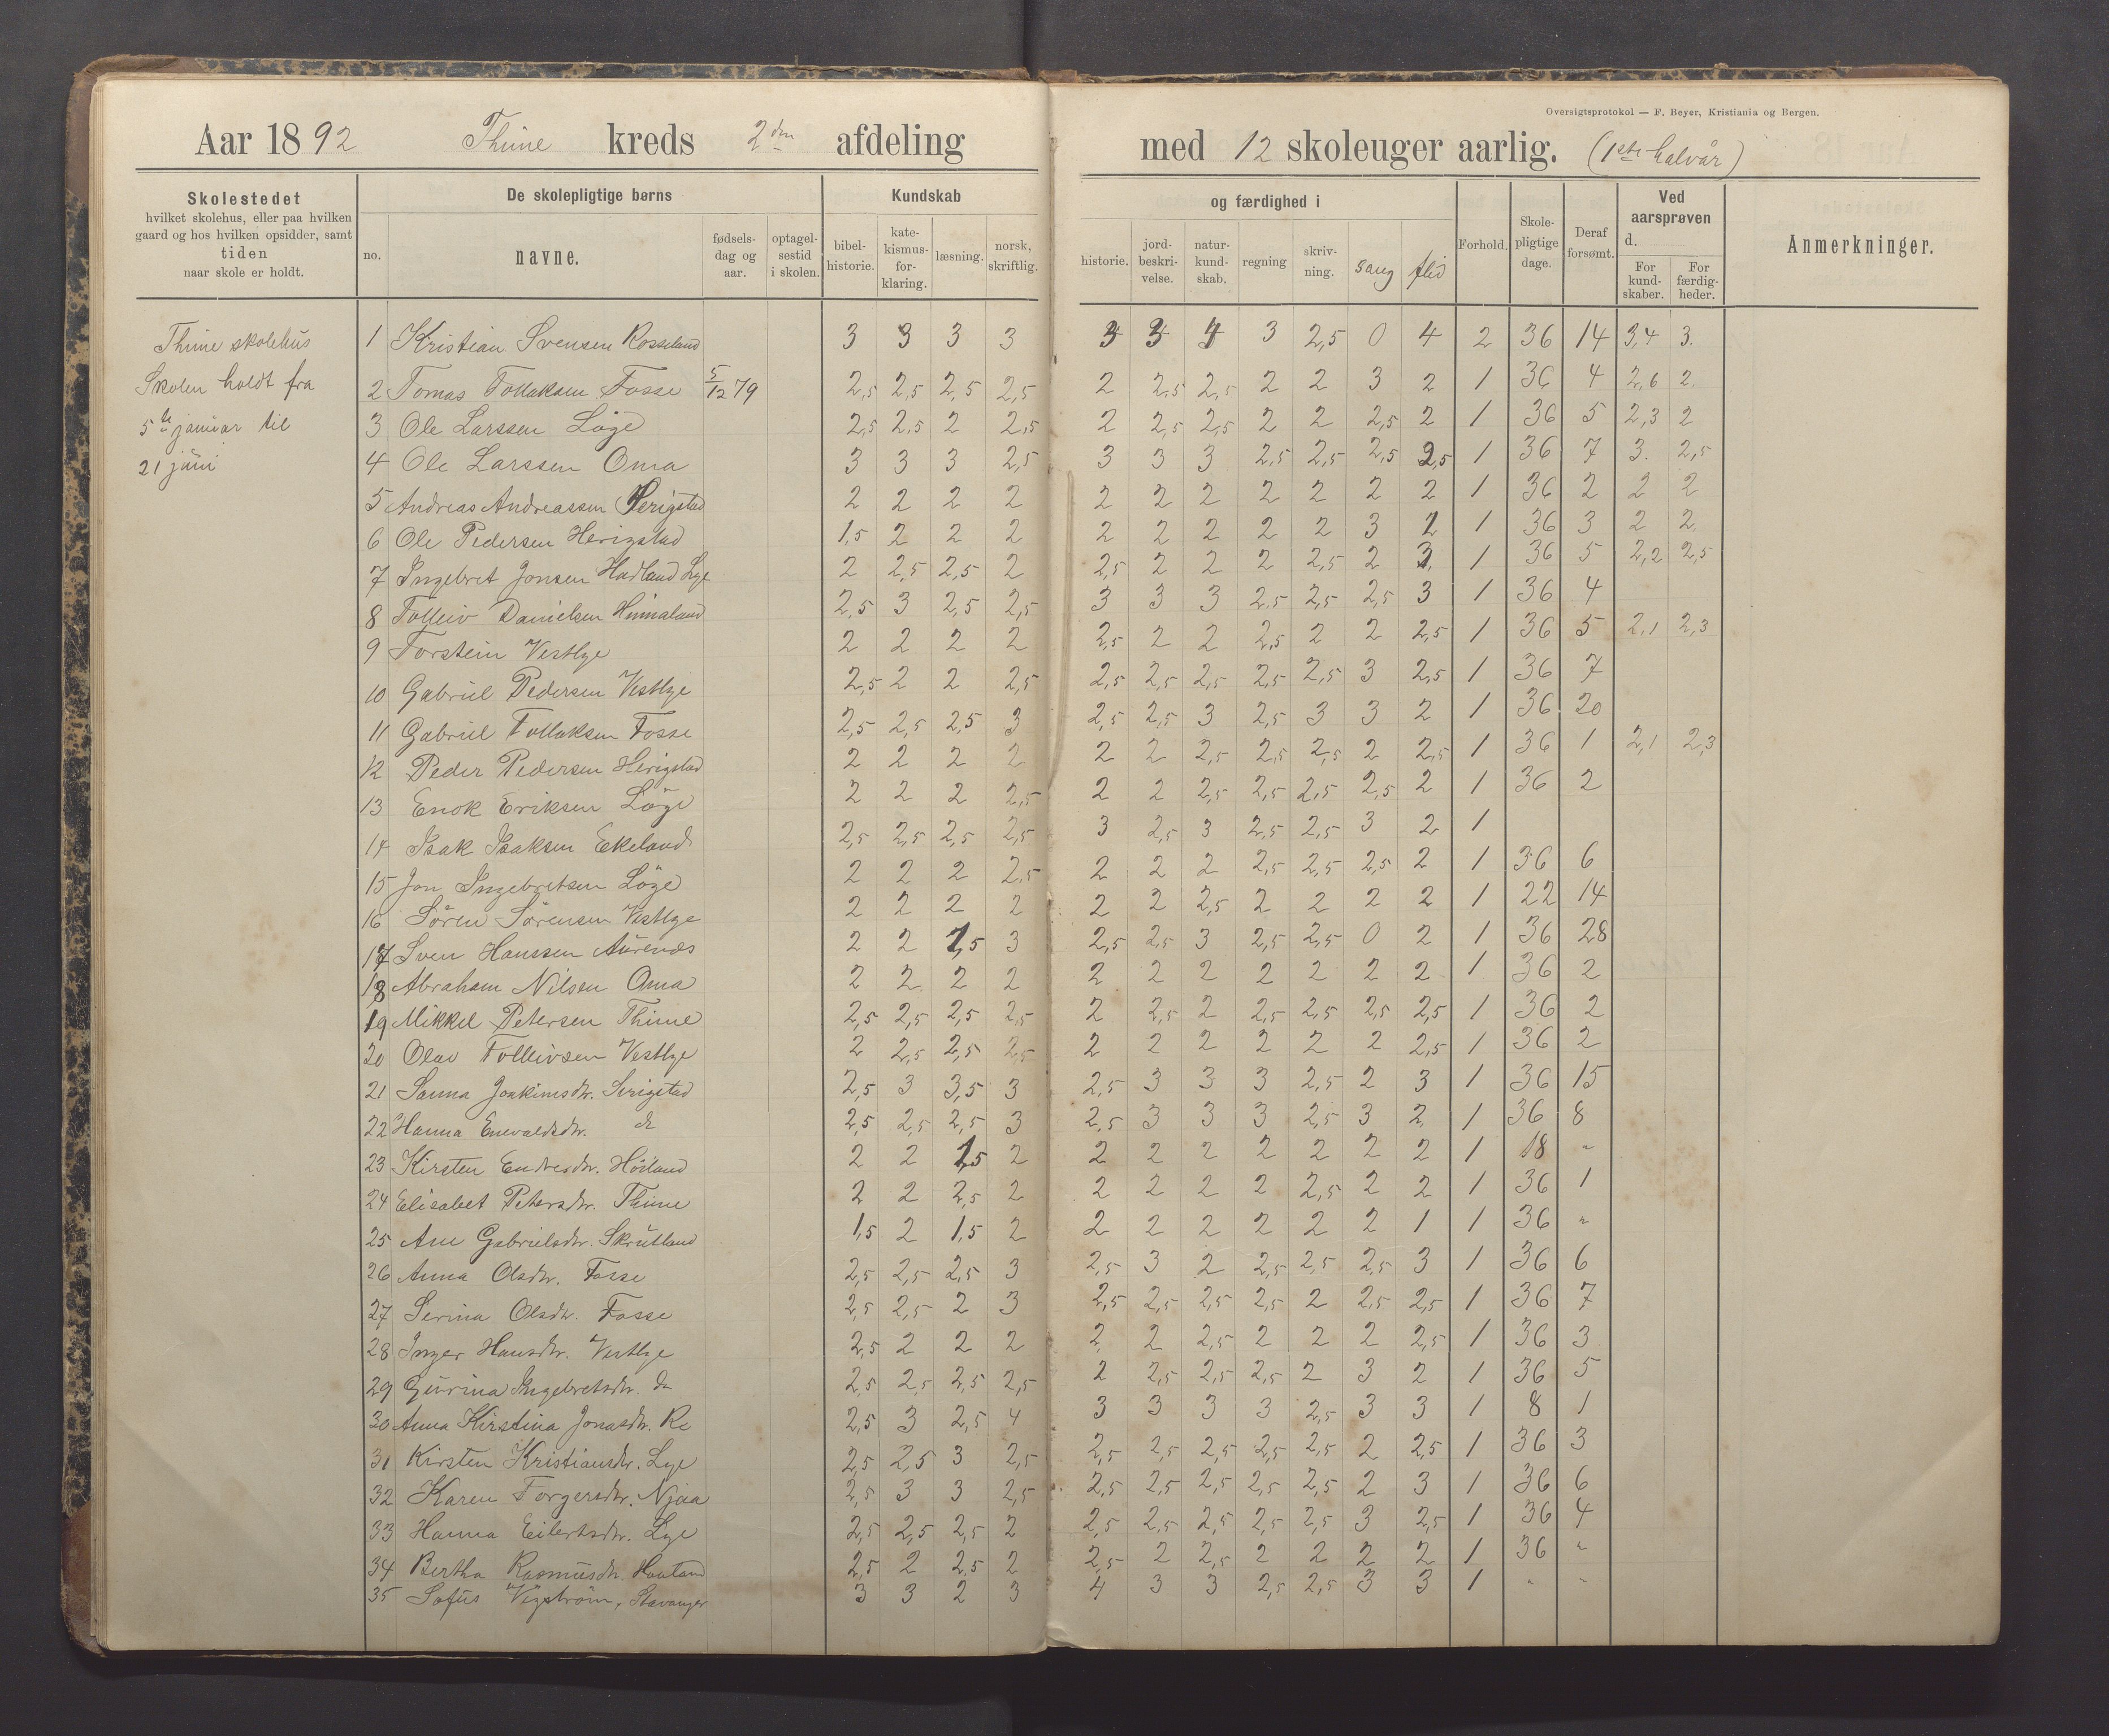 Oversigtsprotokol — F. Beyer, Kristiania og Bergen.
Aar 1892 Thime kreds 2den afdeling med 12 skoleuger aarlig. (1ste halvår)
Skolestedet
hvilket skolehus, eller paa hvilken
gaard og hos hvilken opsidder, samt
tiden
naar skole er holdt.
De skolepligtige børns
no. navne. fødsels-dag og aar. optagel-sestid i skolen.
Kundskab og færdighed i
bibel-historie. kate-kismus-for-klaring. læsning. norsk, skriftlig. historie. jord-beskri-velse. natur-kund-skab. regning skriv-ning. sang flid
Forhold. Skole-pligtige dage. Deraf forsømt.
Ved aarsprøven d.
For kund-skaber. For færdig-heder.
Anmerkninger.
Thime skolehus
Skolen holdt fra
5te januar til
21 juni
1 Kristian Svensen Rosseland 3 3 3 3 3 3 4 3 2,5 0 4 2 36 14 3,4 3.
2 Tomas Tollaksen Fosse 5/12 79 2,5 2,5 2,5 2,5 2 2,5 2,5 2 2 3 2 1 36 4 2,6 2.
3 Ole Larssen Löge 2,5 2,5 2 2,5 2 2,5 2,5 2 2 2,5 2 1 36 5 2,3 2
4 Ole Larssen Oma 3 3 3 2,5 3 3 3 2,5 2,5 2,5 2,5 1 36 7 3. 2,5
5 Andreas Andreassen Serigstad 2 2 2 2 2 2 2 2 2 2 2 1 36 2 2 2
6 Ole Pedersen Herigstad 1,5 2 2 2 2 2 2 2 2 3 2 1 36 3 2 2
7 Ingebret Jonsen Hadland Lye 2 2,5 2,5 2 2,5 2 2 2 2,5 2 3, 1 36 5 2,2 2,5
8 Tolleiv Danielsen Himaland 2,5 3 2,5 2,5 3 3 3 2,5 2,5 2,5 3 1 36 4
9 Torstein Vestlye 2 2 2 2 2,5 2 2 2,5 2 2 2,5 1 36 5 2,1 2,3
10 Gabriel Pedersen Vestlye 2,5 2 2 2,5 2,5 2,5 2,5 2,5 2,5 3 2,5 1 36 7
11 Gabriel Tollaksen Fosse 2,5 2,5 2,5 3 2,5 2,5 3 2,5 3 3 2 1 36 20
12 Peder Pedersen Herigstad 2 2 2 2 2 2 2,5 2,5 2,5 2 2,5 1 36 1 2,1 2,3
13 Enok Eriksen Löge 2 2 2 2,5 2 2 2,5 2,5 2,5 2,5 2 1 36 2
14 Isak Isaksen Ekeland 2,5 2,5 2,5 2,5 3 2,5 3 2,5 2,5 3 2 1
15 Jon Ingebretsen Löge 2 2 2 2,5 2 2 2 2,5 2,5 2,5 2 1 36 6
16 Sören Sörensen Vestlye 2 2 2 2 2 2 2,5 2 2 2 2 1 22 14
17 Sven Hanssen Aurenes 2 2 1,5 3 2,5 2,5 3 2,5 2,5 0 2 1 36 28
18 Abraham Nilsen Oma 2 2 2 2 2 2 2 2 2 2 2 1 36 2
19 Mikkel Petersen Thime 2,5 2,5 2,5 2,5 2 2,5 2 2,5 2,5 2,5 2,5 1 36 2
20 Olav Tolleivsen Vestlye 2 2,5 2,5 2,5 2 2 2 2 2 2 2,5 1 36 2
21 Sanna Joakimsdtr. Serigstad 2,5 3 3,5 3 2,5 3 3 3 2,5 2 3 1 36 15
22 Hanna Enevaldsdtr. do 2,5 2,5 2,5 3 2,5 3 3 3 2,5 3 2 1 36 8
23 Kirsten Endresdtr. Höiland 2 2 1,5 2 2 2 2 2 2 2 2 1 18 "
24 Elisabet Petersdtr. Thime 2 2 2,5 2 2 2 2 2 2,5 2 2 1 36 1
25 Ane Gabrielsdtr. Skrutland 1,5 2 1,5 2 2 2 2 2 2 2 1 1 36 "
26 Anna Olsdtr. Fosse 2,5 2,5 2,5 3 2,5 3 2 2,5 2,5 2,5 3 1 36 6
27 Serina Olsdtr. Fosse 2,5 2,5 2 3 2,5 2,5 2,5 2,5 2 2,5 2,5 1 36 7
28 Inger Hansdtr. Vestlye 2,5 2 2 2 2 2 2,5 2 2 2 2,5 1 36 3
29 Gurina Ingebretsdtr. do 2,5 2,5 2,5 2,5 2 2,5 2,5 2,5 2 3 2 1 36 5
30 Anna Kirstina Jonasdtr. Re 2,5 3 2,5 4 3 3 3 3 2,5 3 3 1 8 1
31 Kirsten Kristiansdtr. Lye 2,5 2,5 3 2,5 2,5 2,5 2,5 2,5 2,5 2 2,5 1 36 3
32 Karen Torgersdtr. Njaa 2,5 3 3 2,5 2,5 2,5 2,5 2,5 2,5 2 3 1 36 6
33 Hanna Eilertsdtr. Lye 2,5 2,5 2,5 2 2,5 2,5 2,5 2,5 2,5 3 2,5 1 36 4
34 Bertha Rasmusdtr. Hauland 2,5 2 2,5 2 2,5 2 2,5 2 2 2 2 1 36 "
35 Sofus Vigström, Stavanger 3 3 2 3 4 3 3 2,5 2,5 3 3 1 " "